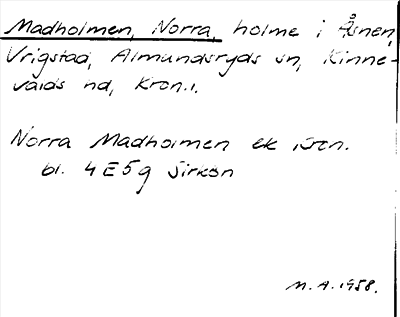 Madholmen, Norra, holme i Åsnen,
Vrigstad, Almundsryds sn, Kinne-
valds hd, Kron.l.
Norra Madholmen ek kron.
bl. 4E5g Sirkön
M.A. 1958.